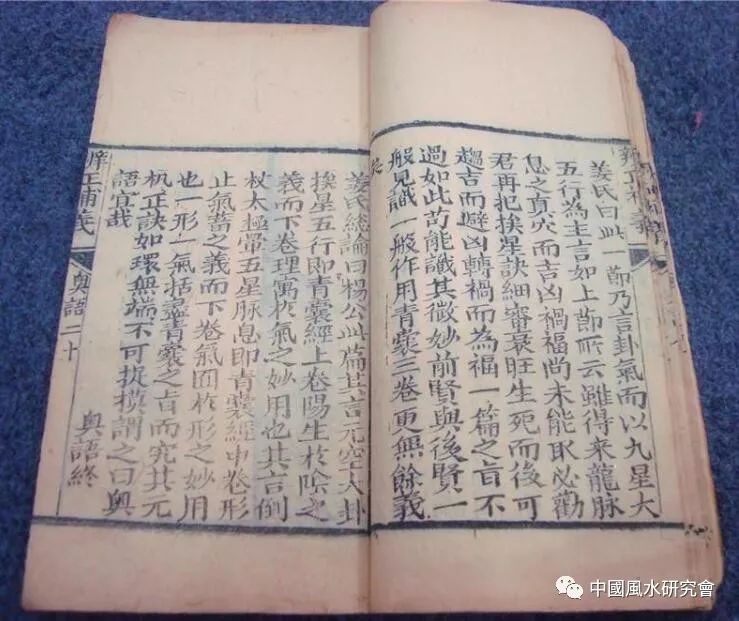 姜氏曰此一節乃言卦氣而以九星大
五行為主言如上節所云雖得來龍脉
息之真穴而吉凶禍福尚未能取必勸
君再把挨星訣細審衰旺生死而後可
趨吉而避凶轉禍而為福一篇之旨不
過如此苟能識其微妙前賢與後賢一
般見識一般作用青囊三卷更無餘義
矣
姜氏總論曰楊公此篇其言元空大卦
挨星五行即青囊經上卷陽生扵陰之
義而下卷理寓扵氣之妙用也其言倒
杖太極暈五星脉息即青囊經中卷形
止氣蓄之義而下卷氣囿扵形之妙用
也一形一氣括盡青囊之旨而究其元
机正訣如環無端不可捉摸謂之曰奧
語宜哉
奧語終
辨正補義 奧語二十
中國風水研究會